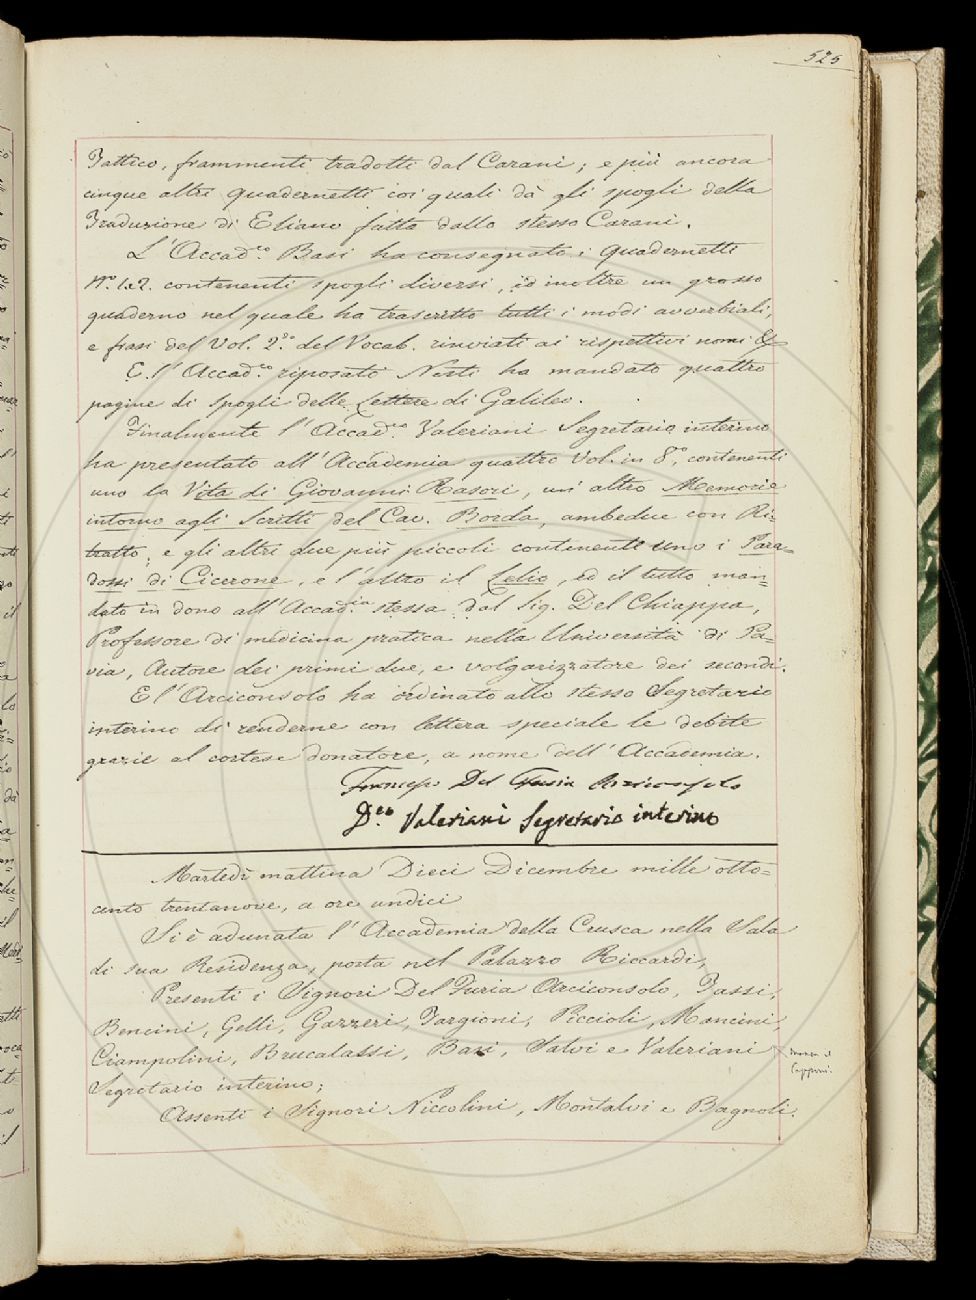 525
Tattico, frammenti tradotti dal Carani; e più ancora
cinque altri quadernetti coi quali dà gli spogli della
Traduzione di Eliano fatta dallo stesso Carani.
L'Accad.co Basi ha consegnato i quadernetti
N.o 1.e 2. contenenti spogli diversi, ed inoltre un grosso
quaderno nel quale ha trascritto tutti i modi avverbiali,
e frasi del Vol. 2.o del Vocab. rinviati ai rispettivi nomi &
E l'Accad.co riposato Nesti ha mandato quattro
pagine di Spogli delle Lettere di Galileo.
Finalmente l'Accad.co Valeriani Segretario interino
ha presentato all'Accademia quattro Vol. in 8.o, contenenti
uno la Vita di Giovanni Rasori, un'altro Memorie
intorno agli Scritti del Cav. Borda, ambedue con Ri-
tratto; e gli altri due più piccoli contenenti uno i Para-
dossi di Cicerone, e l'altro il Lelio, ed il tutto man-
dato in dono all'Accad.ia stessa dal Sig. Del Chiappa,
Professore di medicina pratica nella Università di Pa-
via, Autore dei primi due, e volgarizzatore dei secondi.
E l'Arciconsolo ha ordinato allo stesso Segretario
interino di renderne con lettera speciale le debite
grazie al cortese donatore, a nome dell'Accademia.
Francesco Del Furia Arciconsolo
D.co Valeriani Segretario interino
Martedì mattina Dieci Dicembre mille otto-
cento trentanove, a ore undici
Si è adunata l'Accademia della Crusca nella Sala
di sua Residenza, posta nel Palazzo Riccardi,
Presenti i Signori Del Furia Arciconsolo, Tassi,
Bencini, Gelli, Gazzeri, Targioni, Piccioli, Mancini,
Ciampolini, Brucalassi, Basi, Salvi e Valeriani
manca il
Capponi.
Segretario interino;
Assenti i Signori Niccolini, Montalvi e Bagnoli.